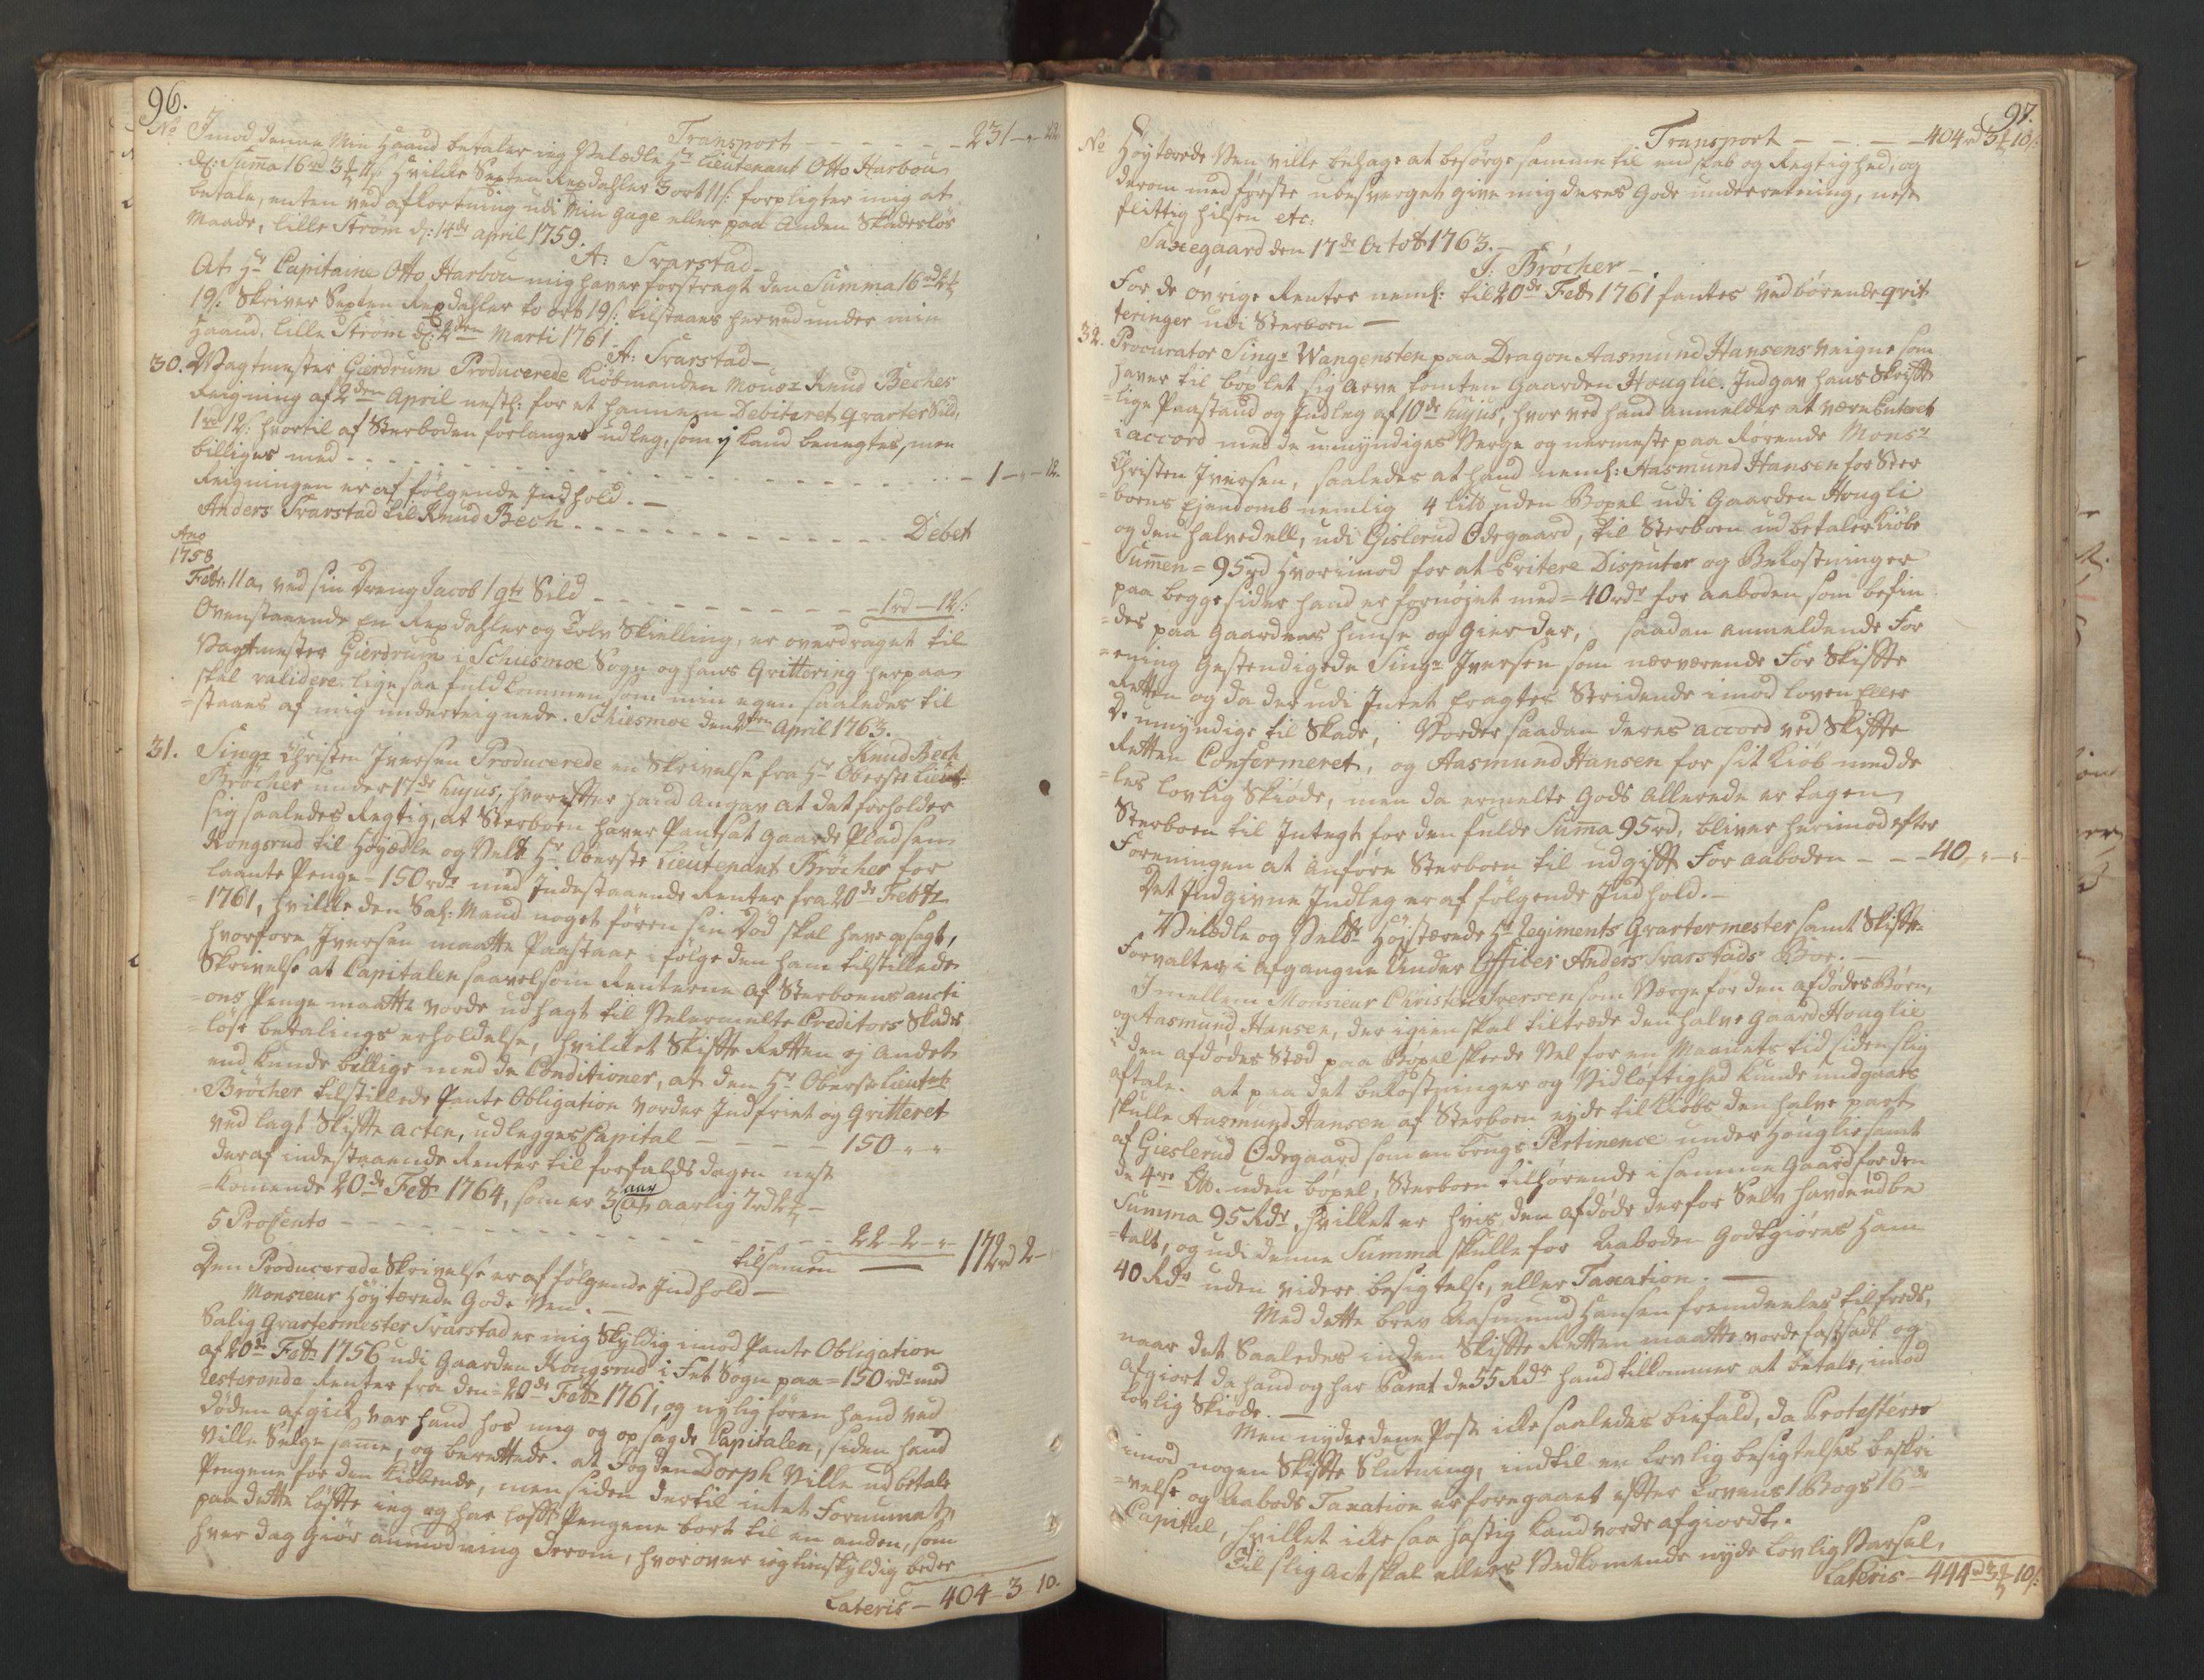 96.
Transport - - - - - - 231 - " - 22
No Imod denne Min Haand betaler ieg Velædle Hr Lieutenant Otto Harbou
d: Suma 16rd 3 ort 11 s: hvilke Sexten Rixdahler 3 ort 11 s: forpligter mig at
betale, enten ved afkortning udi Min gage eller paa Anden Skadesløs
Maade, Lille Strøm d: 14de April 1759.
A: Svarstad -
At Hr Capitaine Otto Harbou mig haver forstragt den Summa 16rd 2 ort
19 s: Skriver Sexten Rixdahler to ort 19 s: tilstaaes herved under min
Haand. Lille Strøm d: 2den Marti 1761.
A: Svarstad -
30. Wagtmester Gierdrum Producerede Kiöbmanden Mousr Knud Beches
Reigning af 2den April nesth: for et hannem Debiteret qvarter Sild,
1rd 12 s: hvortil af Sterboden forlanges udleg, som ij kand benegtes, men
billiges med - - - - - - - - - - - - 1 - " - 12
Reigningen er af følgende Indhold. -
Anders Svarstad til Knud Bech - - - - - - - - - Debet
Ano
1758
Febr. 11 a, ved sin Dreng Jacob 1 qtr Sild - - - - - - - - 1rd - 12 s:
Ovenstaaende En Rixdahler og Tolv Skielling, er overdraget til
Vagtmester Gierdrum i Schiesmoe Sogn og hans Qvittering herpaa
skal validere lige saa fuldkommen som min egen saaledes til
=staaes af mig underteignede. Schiesmoe den 2den April 1763.
Knud Bech
31. Singr Christen Iversen Producerede en Skrivelse fra Hr Oberste Lieut:
Bröcher under 17de hujus, hvoreffter hand Angav at det forholder
sig saaledes Rigtig, at Sterboen haver Pantsat Gaarde Pladsen
Kongsrud til Höyædle og Velb: Hr Oberste Lieutenant Bröcher for
laante Penge = 150 rdr med Indestaaende Renter fra 20de Febr
=1761, hvilke den Sal: Mand noget fören sin Död skal have opsagt,
hvorfore Iversen maatte Paastaae i følge den ham tilstillede
Skrivelse at Capitalen saavelsom Renterne af Sterboens aucti
=ons Penge maatte vorde udhagt til Velermelte Creditors Skades
=löse betalings erholdelse, hvilcket Skiffte Retten ej Andet
end kunde billige med de Conditioner, at den Hr Oberste Lieutnt
Bröcher tilstillede Pante Obligation vorder Indfriet og Qvitteret
ved lagt Skiffte acten, udlegges Capital - - - - 150 " "
deraf indestaaende Renter til forfalds dagen nest
=komende 20de Febr 1764, som er 3 aar aarlig 7rd 2 ort -
5 Procento - - - - - - - - - - - 22 - 2 - " -
tilsamen ___ 172rd 2 -
Den Producerede Skrivelse er af følgende Indhold -
Monsieur Höytærede Gode Ven. -
Salig Qvartermester Svarstad er mig Skyldig imod Pante Obligation
af 20de Febr 1756 udi Gaarden Kongsrud i Fet Sogn paa = 150 rdr med
resterende Renter fra den = 20de Febr 1761, og nylig fören hand ved
döden afgick var hand hos mig og opsagde Capitalen, siden hand
ville Selge samme, og berettede. at Fogden Dorph ville udbetale
Pengene for den Kiöbende, men siden dertil intet fornummet,
paa dette löffte ieg og har lofft Pengene bort til en anden, som
hver dag giör anmodning derom, hvorover ieg tienskyldig beder
Lateris - 404 - 3 - 10.
97.
Transport - - . - - 404rd 3 ort 10 s:
No Höytærede Ven ville behage at besørge samme til endskab og Regtighed, og
derom med første ubesverget give mig deres Gode underretning, nest
flittig hilsen etc:
Saxegaard den 17de Octob 1763. -
J: Bröcher -
For de øvrige Renter neml: til 20de Feb 1761 fantes vedbørende qvit
teringer udi Sterboen -
32. Procurator Singr Wangensten paa Dragon Aasmund Hansens veigne som
haver til böxlet sig Arve tomten Gaarden Houglie. Indgav hans Skrifft
=lige Paastand og Indleg af 10de hujus, hvor ved hand anmelder at være Entered
i accord med de umyndiges Verge og nermeste paa Rörende Monsr
Christen Iversen, saaledes at hand neml: Aasmund Hansen for Ster
=boens Ejendomb nemlig 4 lib uden Bopæl udi Gaarden Hougli
og den halvedell, udi Gislerud Ödegaard, til Sterboen udbetaler Kiöbe
Summen = 95rd hvorimod for at Evitere Disputer og Bekostninger
paa begge sider hand er fornöjet med = 40 rdr for aaboden som befin
=des paa Gaardens huuse og gierder, saadan anmeldende For
=ening Gestendigede Singr Iversen som nærværende for Skiffte
Retten og da der udi Intet Eragtes Stridende imod loven Eller
De umyndige til Skade, Vorder saadan deres accord ved Skiffte
Retten Confermeret, og Aasmund Hansen for sit kiöb meddee
=les lovlig Skiöde, men da ermelte Gods Allerede er tagen
Sterboen til Indtegt for den fulde Suma 95rd, bliver herimod efter
Foreningen at Anföre Sterboen til udgifft for aaboden - - - 40 - " - " -
Det Indgivne Indleg er af følgende Indhold. -
Velædle og Velb: Höystærede Hr Regiments Qvartermester samt Skiffte
Forvalter i Afgangne Under Officer Anders Svarstads Boe. -
Imellem Monsieur Christen Iversen som Værge for den afdödes Börn,
og Aasmund Hansen, der igien skal tiltræde den halve Gaard Houglie
i den afdödes Stæd paa Böxel skeede Vel for en Maanets tid siden slig
aftale. at paa det bekostninger og Vidlöftighed kunde undgaaes
skulle Aasmund Hansen af Sterboen nyde til kiöbs den halve part
af Gieslerud Ödegaard som en brugs Pertinence under Houglie samt
de 4re Lb. uden böxel, Sterboen tilhørende i samme Gaard for den
Summa 95 Rdr, hvilket er hvis den afdöde derfor Selv havde udbe
=talt, og udi denne Summa skulle for Aaboden Godtgiöres ham
40 Rdr uden videre besigtelse, eller Taxation. -
Med dette brev Aasmund Hansen fremdeeles tilfreds,
naar det Saaledes inden Skiffte Retten maatte vorde fastsadt og
afgiort da hand og har Parat de 55 Rdr hand tilkommer at betale, imod
lovlig Skiöde. -
Men nyder denne Post icke saaledes biefald, da Protesterer
imod nogen Skiffte Slutning, indtil en lovlig besigtelses beskri
=velse og Aabods Taxation er foregaaet effter Lovens 1 Bogs 16de
Capitul, hvilket icke saa hastig kand vorde afgiordt.
Til slig Act skal ellers Vedkomende nyde lovlig Varsel,
Lateris - 444rd 3 ort 10 s: